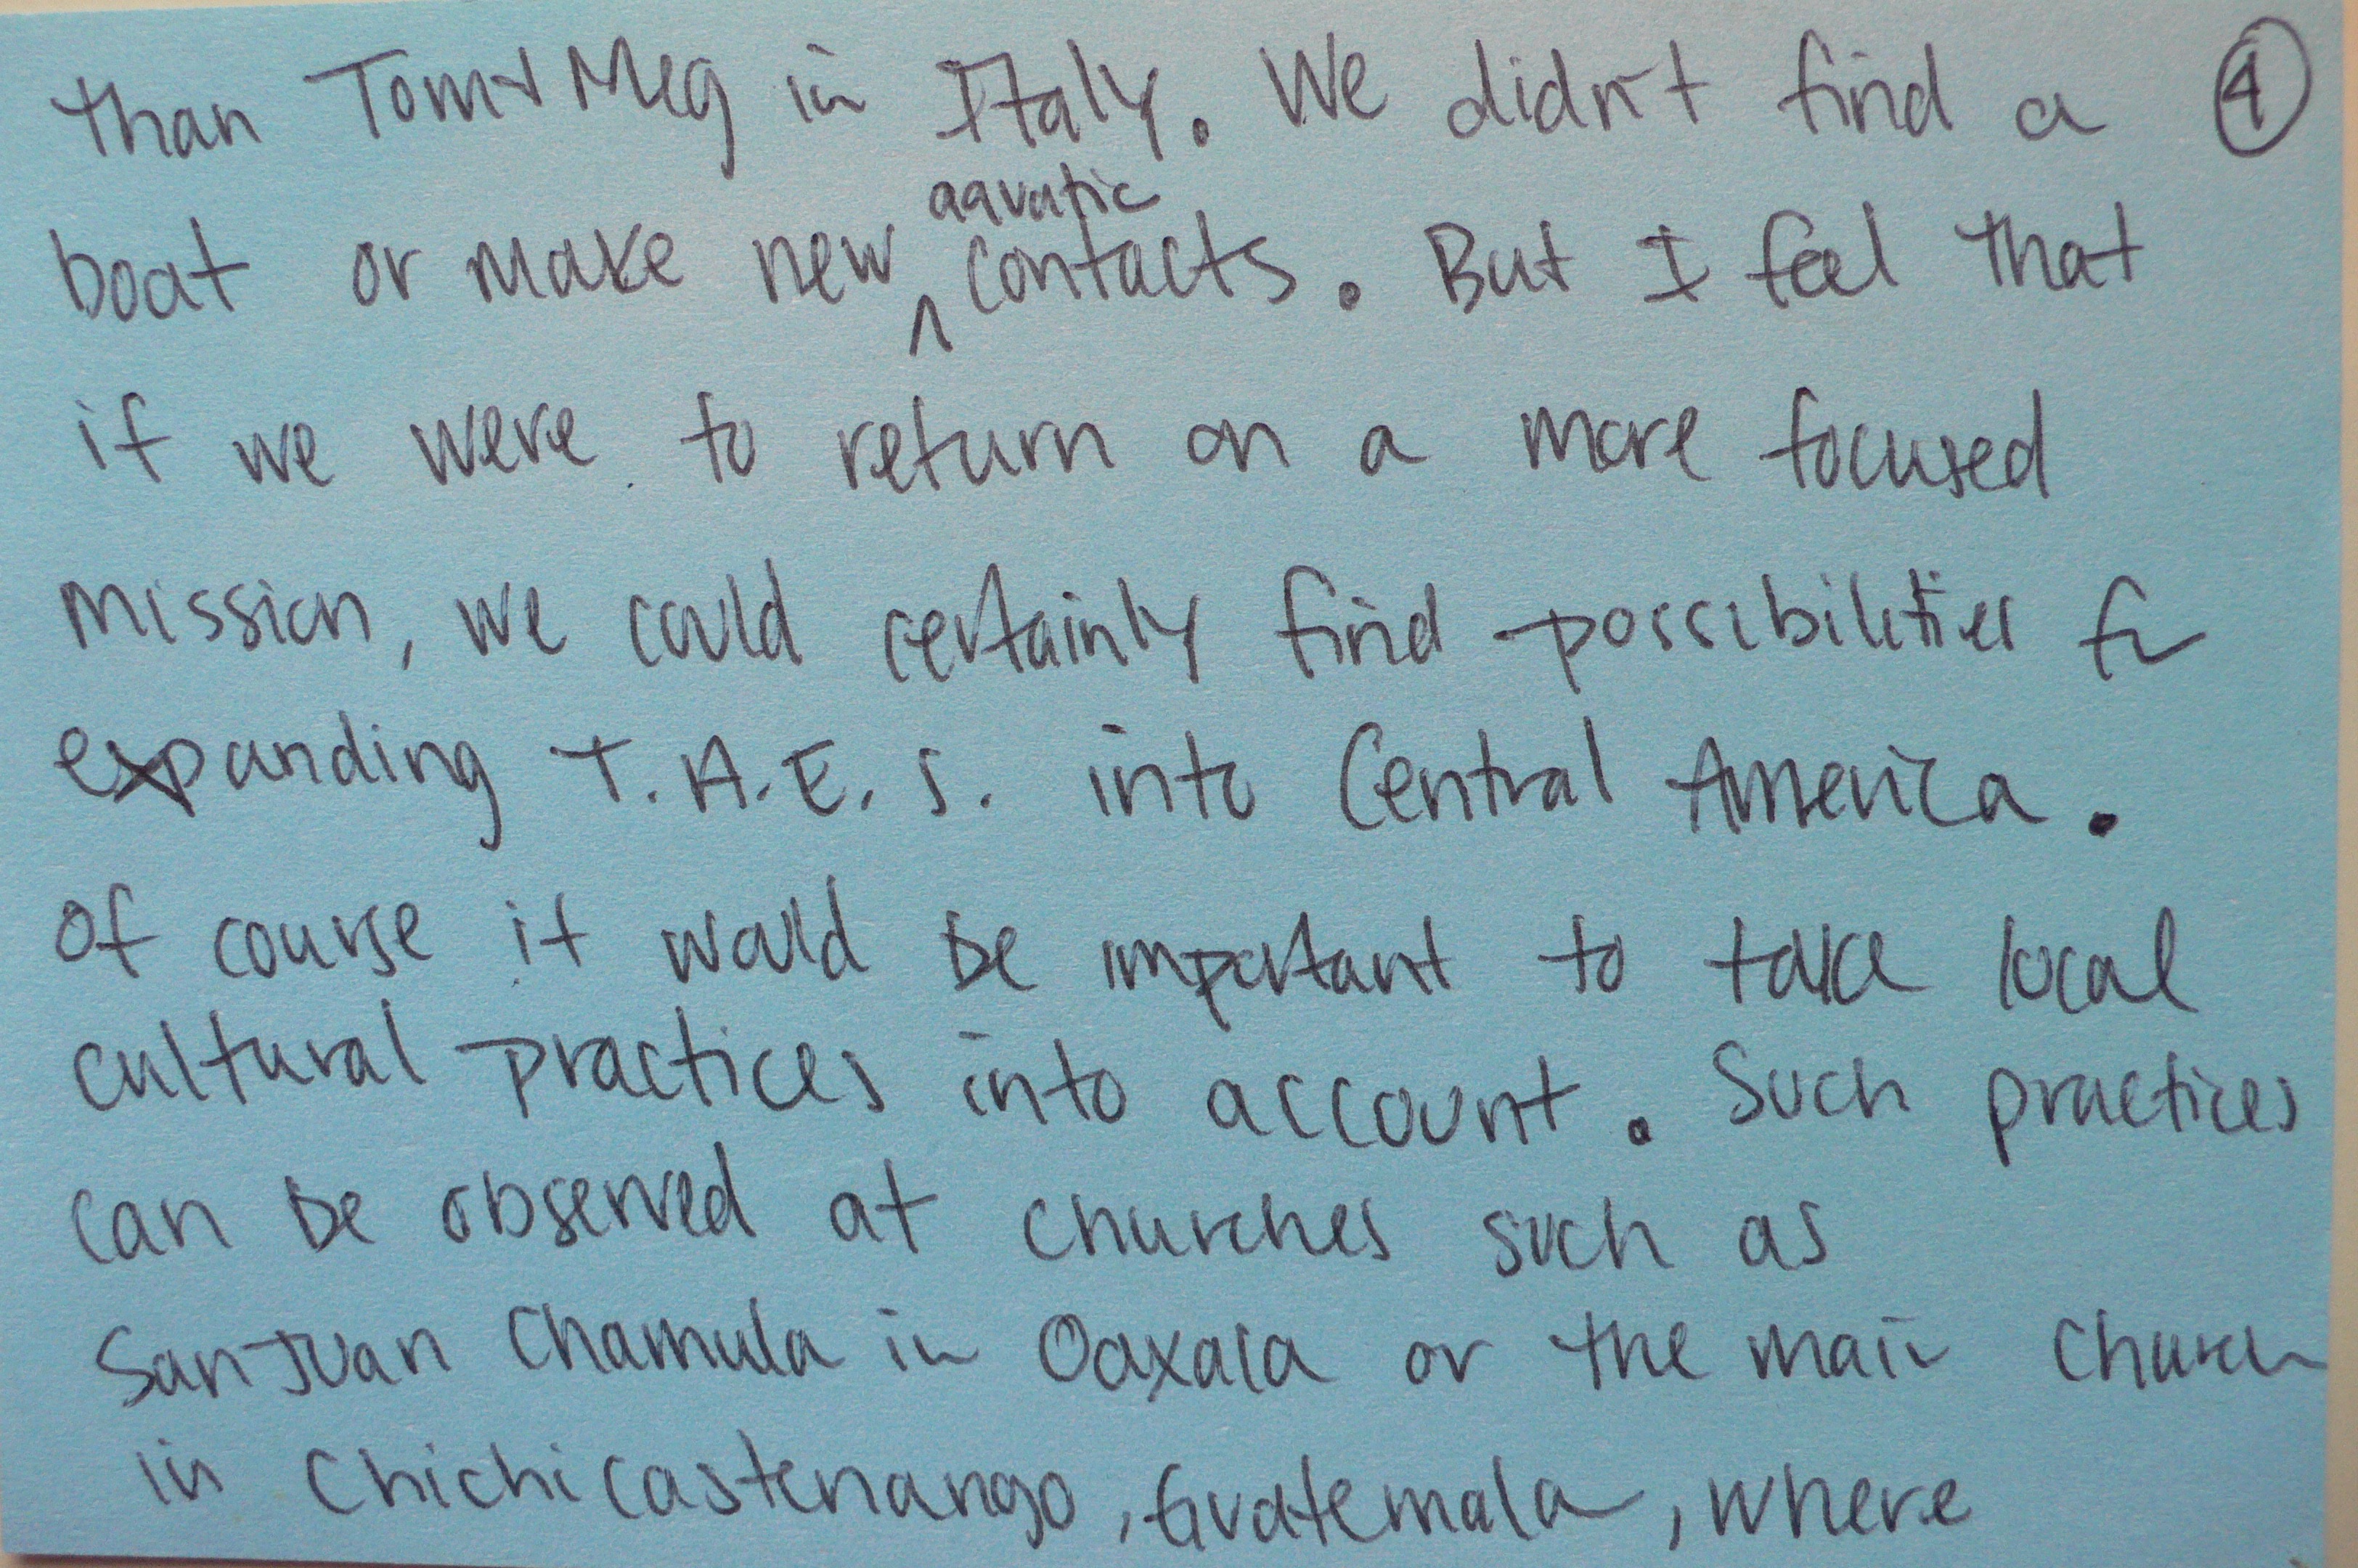 than Tom + Meg in Italy. We didn't find a ④
aquatic
boat or make new ^ contacts. But I feel that
if we were to return on a more focused
mission, we could certainly find possibilities for
expanding T.A.E.S. into Central America.
Of course it would be important to take local
cultural practices into account. Such practices
can be observed at churches such as
San Juan Chamula in Oaxaca or the main church
in Chichicastenango, Guatemala, where